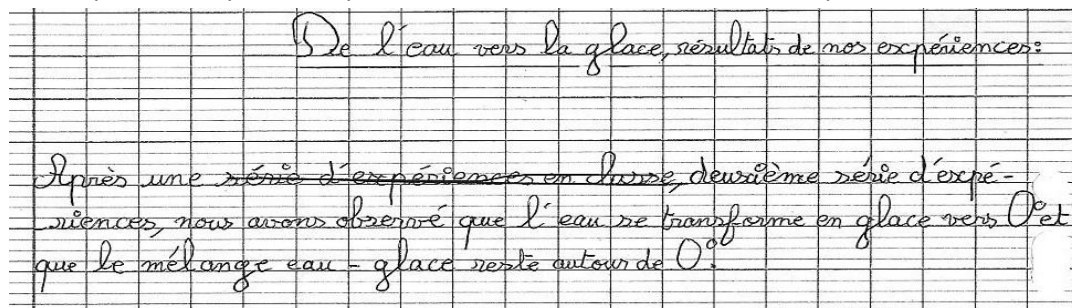 De l'eau vers la glace, résultats de nos expériences:
Après une série d'expériences en classe, deuxième série d'expé-
riences, nous avons observé que l'eau se transforme en glace vers 0° et
que le mélange eau - glace reste autour de 0°.